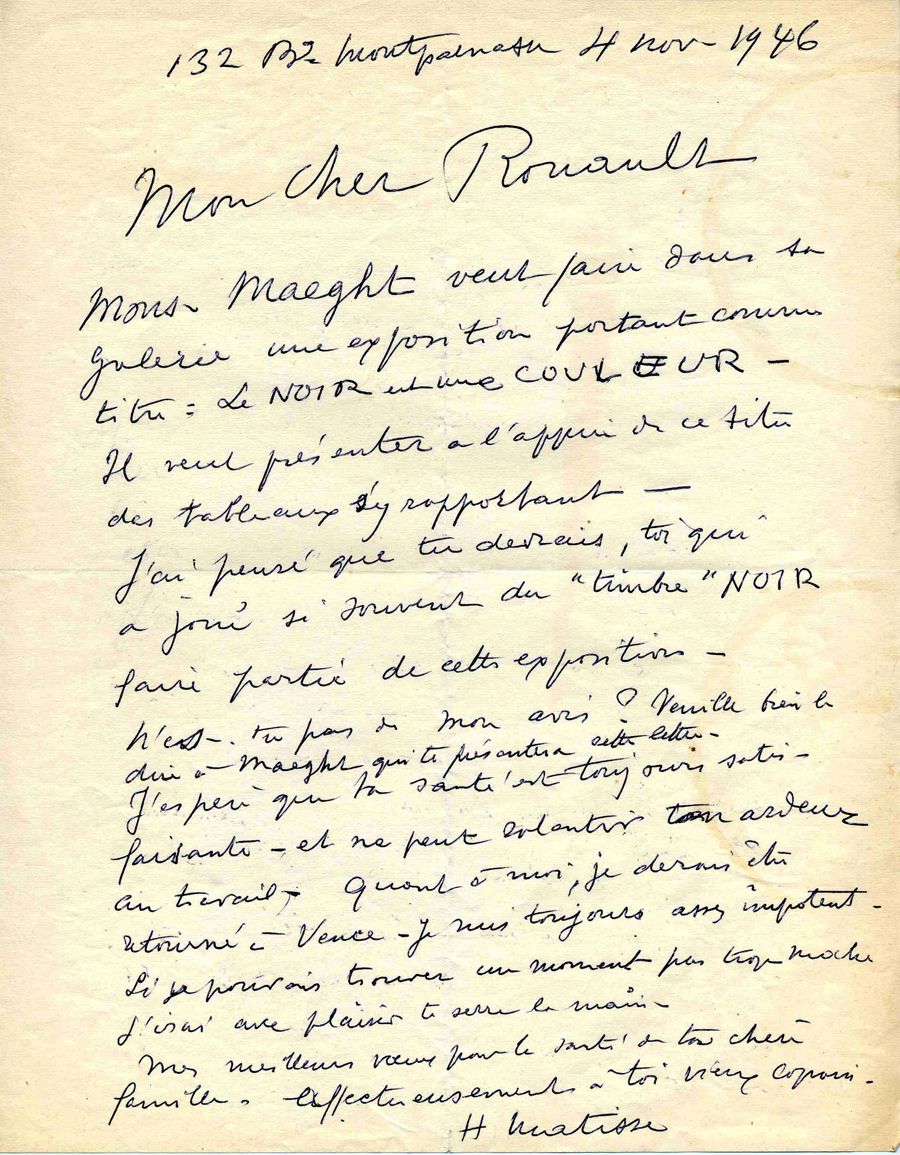 132 Bd Montparnasse 4 nov- 1946
Mon cher Rouault
Mons- Maeght veut faire dans sa
Galerie une exposition portant comme
titre : Le NOIR est une COULEUR -
Il veut présenter a l'appui de ce titre
des tableaux s'y rapportant —
J'ai pensé que tu devrais, toi qui
a joué si souvent du "timbre" NOIR
faire partie de cette exposition -
N'est- tu pas de mon avis ? Veuille bien le
dire à Maeght qui te présentera cette lettre-
J'espère que ta santé est toujours satis-
faisante - et ne peut ralentir ton ardeur
au travail- Quant à moi, je devrais être
retourné à Vence - Je suis toujours assez impotent -
Si je pouvais trouver un moment pas trop moche
j'irai avec plaisir te serrer la main -
Mes meilleurs vœux pour la santé de ta chère
famille. Affectueusement à toi vieux copain -
H Matisse